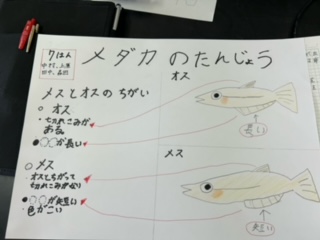 7はん
メダカのたんじょう
メスとオスのちがい
○オス
・切れこみが
ある。
●○○が長い
○メス
オスとちがって
切れこみがない
●○○が短い
・色がこい
オス
長い
メス
短い